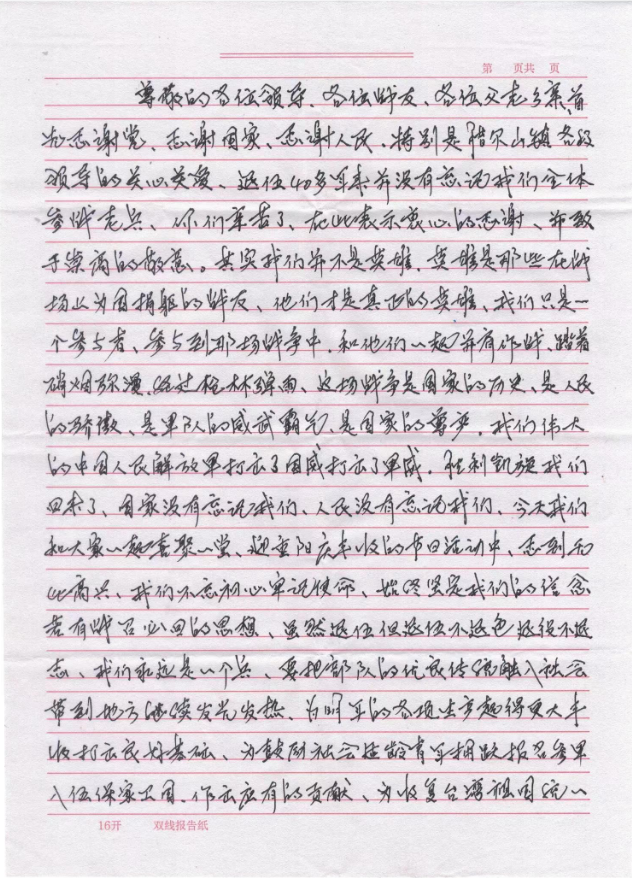 第 页共 页
尊敬的各位领导、各位战友、各位父老乡亲、首
先感谢党、感谢国家、感谢人民、特别是腊尔山镇各级
领导的关心关爱、退伍40多年来并没有忘记我们全体
参战老兵、你们辛苦了、在此表示衷心的感谢、并致
于崇高的敬意。其实我们并不是英雄、英雄是那些在战
场上为国捐躯的战友、他们才是真正的英雄、我们只是一
个参与者、参与到那场战争中、和他们一起并肩作战、踏着
硝烟弥漫、经过枪林弹雨、这场战争是国家的历史、是人民
的骄傲、是军队的威武霸气、是国家的尊严、我们伟大
的中国人民解放军打出了国威打出了军威、胜利凯旋我们
回来了、国家没有忘记我们、人民没有忘记我们、今天我们
和大家一起喜聚一堂、迎重阳庆丰收的节日活动中、感到和
此高兴、我们不忘初心牢记使命、始终坚定我们的信念
若有战召必回的思想、虽然退伍但退伍不退色退役不退
志、我们永远是一个兵、要把部队的优良传统融入社会
带到地方继续发光发热、为明年的各项生产起得更大丰
收打出良好基础、为鼓励社会适龄青年踊跃报名参军
入伍保家卫国、作出应有的贡献、为收复台湾祖国统一
16开 双线报告纸